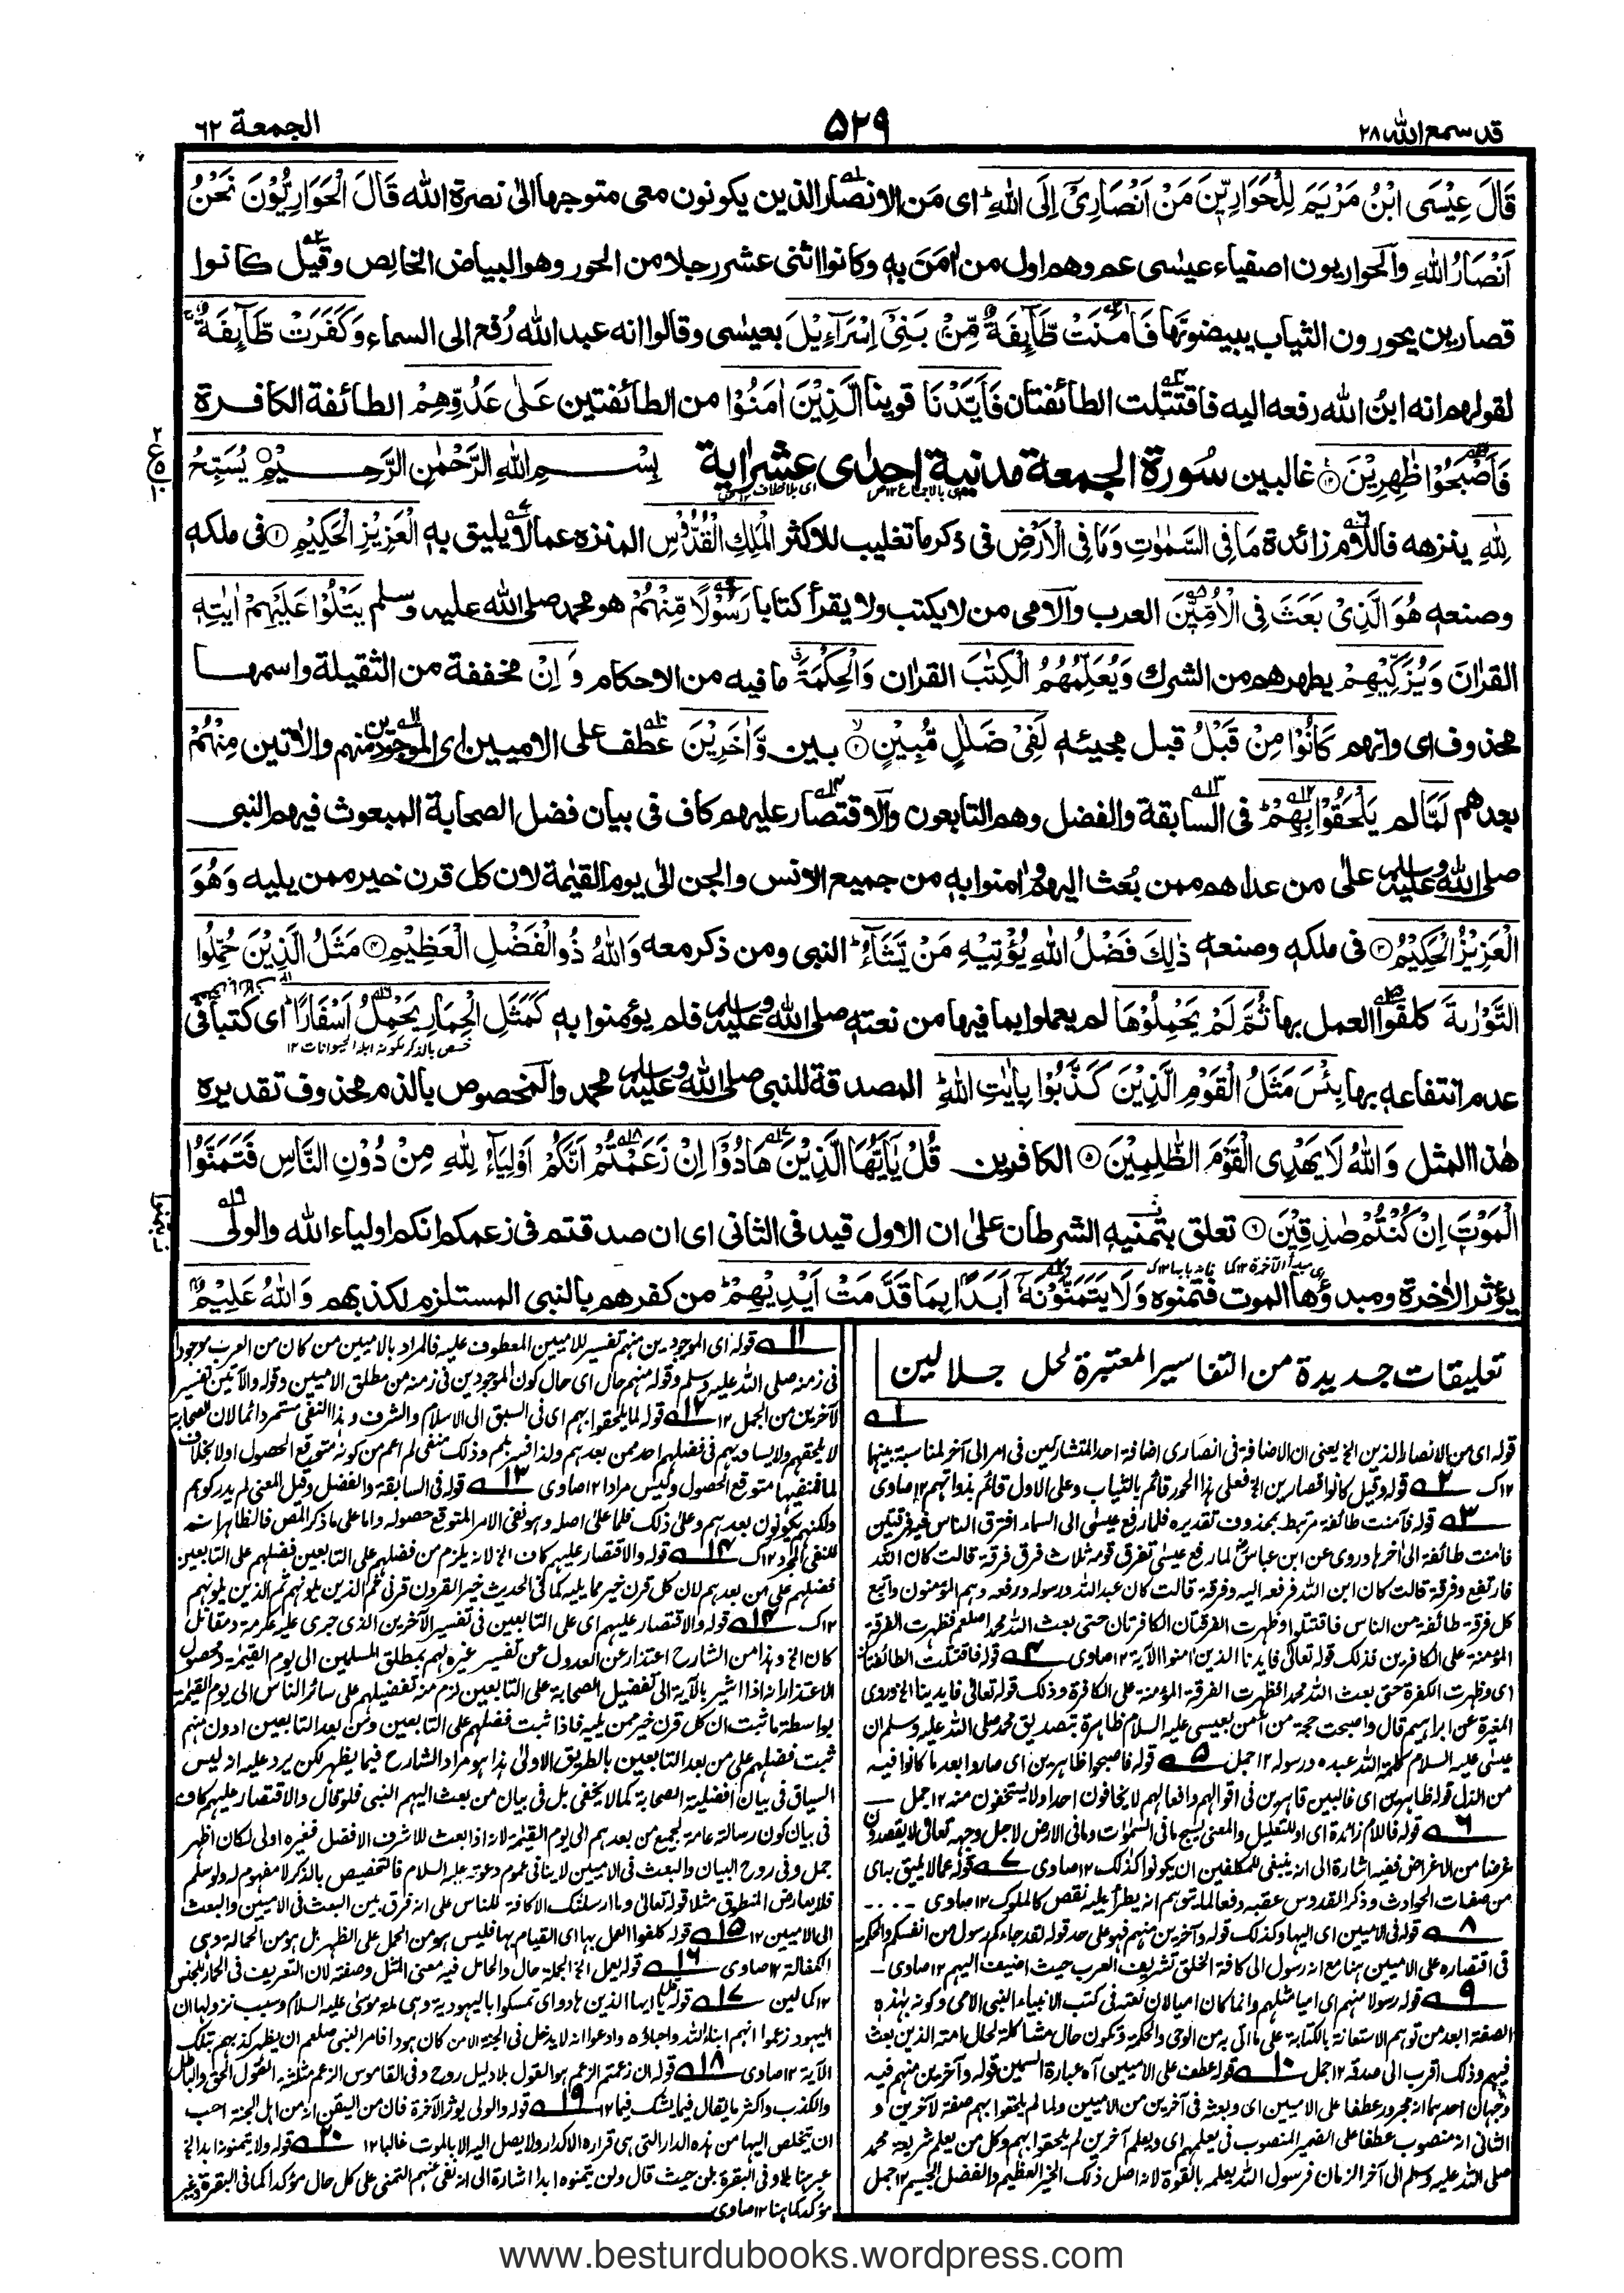 قد سمع الله ٢٨
٥٢٩
الجمعة ٦٢
قَالَ عِيْسَى ابْنُ مَرْيَمَ لِلْحَوَارِيّٖنَ مَنْ اَنْصَارِىْٓ اِلَى اللّٰهِ ؕ اى مَن الانصار الذين يكونون معى متوجها الىٰ نصرة الله قَالَ الْحَوَارِيُّوْنَ نَحْنُ
اَنْصَارُ اللّٰهِ والحواريون اصفياء عيسٰى عم وهم اول من اٰمَنَ به وكانوا اثنى عشر رجلا من الحور وهو البياض الخالص وقيل كانوا
قصارين يحورون الثياب يبيضونها فَاٰمَنَتْ طَّآىِٕفَةٌ مِّنْۢ بَنِىْٓ اِسْرَآءِيْلَ بعيسٰى وقالوا انه عبد الله رُفع الى السماء وَكَفَرَتْ طَّآىِٕفَةٌ ۚ
لقولهم انه ابنُ الله رفعه اليه فاقتتلت الطائفتان فَاَيَّدْنَا قوينا الَّذِيْنَ اٰمَنُوْا من الطائفتين عَلٰى عَدُوِّهِمْ الطائفة الكافرة
فَاَصْبَحُوْا ظٰهِرِيْنَ ۝١٤ غالبين سُورة الجمعة مدنية احدٰى عشر اٰية بِسْمِ اللهِ الرَّحْمٰنِ الرَّحِيْمِ ۝ يُسَبِّحُ
لِلّٰهِ ينزهه فاللام زائدة مَا فِى السَّمٰوٰتِ وَمَا فِى الْاَرْضِ فى ذكر ما تغليب للاكثر الْمَلِكِ الْقُدُّوْسِ المنزه عما لا يليق به الْعَزِيْزِ الْحَكِيْمِ ۝١ فى ملكه
وصنعه هُوَ الَّذِىْ بَعَثَ فِى الْاُمِّيّٖنَ العرب والامى من لا يكتب ولا يقرأ كتابا رَسُوْلًا مِّنْهُمْ هو محمد صلى الله عليه وسلم يَتْلُوْا عَلَيْهِمْ اٰيٰتِهٖ
القراٰنَ وَيُزَكِّيْهِمْ يطهرهم من الشرك وَيُعَلِّمُهُمُ الْكِتٰبَ القراٰن وَالْحِكْمَةَ ۗ ما فيه من الاحكام وَ اِنْ مخففة من الثقيلة واسمها
محذوف اى وانهم كَانُوْا مِنْ قَبْلُ قبل مجيئه لَفِىْ ضَلٰلٍ مُّبِيْنٍ ۝٢ بين وَّاٰخَرِيْنَ عطف على الاميين اى الموجودين منهم والاٰتين مِنْهُمْ
بعدهم لَمَّا لم يَلْحَقُوْا بِهِمْ ؕ فى السابقة والفضل وهم التابعون والاقتصار عليهم كاف فى بيان فضل الصحابة المبعوث فيهم النبى
صلى الله عليه وسلم علىٰ من عداهم ممن بُعث اليهم واٰمنوا به من جميع الانس والجن الىٰ يوم القيٰمة لان كل قرن خير ممن يليه وَهُوَ
الْعَزِيْزُ الْحَكِيْمُ ۝٣ فى ملكه وصنعه ذٰلِكَ فَضْلُ اللّٰهِ يُؤْتِيْهِ مَنْ يَّشَآءُ ؕ النبى ومن ذكر معه وَاللّٰهُ ذُو الْفَضْلِ الْعَظِيْمِ ۝٤ مَثَلُ الَّذِيْنَ حُمِّلُوا
التَّوْرٰىةَ كلفوا العمل بها ثُمَّ لَمْ يَحْمِلُوْهَا لم يعملوا بما فيها من نعته صلى الله عليه وسلم فلم يؤمنوا به كَمَثَلِ الْحِمَارِ يَحْمِلُ اَسْفَارًا ؕ اى كتبا فى
عدم انتفاعه بها بِئْسَ مَثَلُ الْقَوْمِ الَّذِيْنَ كَذَّبُوْا بِاٰيٰتِ اللّٰهِ ؕ المصدقة للنبى صلى الله عليه وسلم محمد والمخصوص بالذم محذوف تقديره
هٰذا المثل وَاللّٰهُ لَا يَهْدِى الْقَوْمَ الظّٰلِمِيْنَ ۝٥ الكافرين قُلْ يٰٓاَيُّهَا الَّذِيْنَ هَادُوْٓا اِنْ زَعَمْتُمْ اَنَّكُمْ اَوْلِيَآءُ لِلّٰهِ مِنْ دُوْنِ النَّاسِ فَتَمَنَّوُا
الْمَوْتَ اِنْ كُنْتُمْ صٰدِقِيْنَ ۝٦ تعلق بتمنيه الشرطان علىٰ ان الاول قيد فى الثانى اى ان صدقتم فى زعمكم انكم اولياء الله والولى
يؤثر الاٰخرة ومبدؤها الموت فتمنوه وَلَا يَتَمَنَّوْنَهٗٓ اَبَدًۢا بِمَا قَدَّمَتْ اَيْدِيْهِمْ ؕ من كفرهم بالنبى المستلزم لكذبهم وَاللّٰهُ عَلِيْمٌۢ
تعليقات جديدة من التفاسير المعتبرة لحل جلالين
١ـه
قوله اى من الانصار الذين الخ يعنى ان الاضافة فى انصارى اضافة احد المتشاركين فى امر الى آخر لمناسبة بينهما
١٢ك ٢ـه قوله وقيل كانوا قصارين الخ فعلى هذا الحور قائم بالثياب وعلى الاول قائم بذواتهم ١٢ صاوى
٣ـه قوله فآمنت طائفة مرتبط بمحذوف تقديره فلما رفع عيسى الى السماء افترق الناس فيه فرقتين
فآمنت طائفة الى آخرها وروى عن ابن عباس لما رفع عيسى تفرق قومه ثلاث فرق فرقة قالت كان الله
فارتفع وفرقة قالت كان ابن الله فرفعه اليه وفرقة قالت كان عبد الله ورسوله ورفعه وهم المؤمنون واتبع
كل فرقة طائفة من الناس فاقتتلوا وظهرت الفرقتان الكافرتان حتى بعث الله محمدا صلعم فظهرت الفرقة
المؤمنة على الكافرين فذلك قوله تعالى فايدنا الذين آمنوا الآية ١٢ صاوى ٤ـه قوله فاقتتلت الطائفتان
اى وظهرت الكفرة حتى بعث الله محمدا فظهرت الفرقة المؤمنة على الكافرة وذلك قوله تعالى فايدنا الخ وروى
المغيرة عن ابراهيم قال واصبحت حجة من آمن بعيسى عليه السلام ظاهرة بتصديق محمد صلى الله عليه وسلم ان
عيسى عليه السلام كلمة الله عبده ورسوله ١٢ جمل ٥ـه قوله فاصبحوا ظاهرين اى صاروا بعد ما كانوا فيه
من الذل قوله ظاهرين اى غالبين قاهرين فى اقوالهم وافعالهم لا يخافون احدا ولا يستخفون منه ١٢ جمل
٦ـه قوله فاللام زائدة اى او للتعليل والمعنى يسبح ما فى السموات وما فى الارض لاجل وجهه تعالى لا يقصدون
غرضا من الاغراض ففيه اشارة الى انه ينبغى للمكلفين ان يكونوا كذلك ١٢ صاوى ٧ـه قوله عما لا يليق به اى
من صفات الحوادث وذكر القدوس عقبه دفعا لما يتوهم انه يطرأ عليه نقص كالملوك ١٢ صاوى
٨ـه قوله فى الاميين اى اليها وكذلك قوله وآخرين منهم فهو على حد قوله لقد جاءكم رسول من انفسكم والحكمة
فى اقتصاره على الاميين هنا مع انه رسول الى كافة الخلق تشريف العرب حيث اضيف اليهم ١٢ صاوى
٩ـه قوله رسولا منهم اى اميا مثلهم وانما كان اميا لان نعته فى كتب الانبياء النبى الامى وكونه بهذه
الصفة ابعد من توهم الاستعانة بالكتابة على ما اتى به من الوحى والحكمة وتكون حاله مشاكلة لحال امته الذين بعث
فيهم وذلك اقرب الى صدقه ١٢ جمل ١٠ـه قوله عطف على الاميين آه عبارة السمين قوله وآخرين منهم فيه
وجهان احدهما انه مجرور عطفا على الاميين اى وبعثه فى آخرين من الاميين ولما لم يلحقوا بهم صفة لآخرين و
الثانى انه منصوب عطفا على الضمير المنصوب فى يعلمهم اى ويعلم آخرين لم يلحقوا بهم وكل من يعلم شريعة محمد
صلى الله عليه وسلم الى آخر الزمان فرسول الله يعلمه بالقوة لانه اصل ذلك الخير العظيم والفضل الجسيم ١٢ جمل
١١ـه قوله اى الموجودين منهم تفسير للاميين المعطوف عليه فالمراد بالاميين من كان من العرب موجودا
فى زمنه صلى الله عليه وسلم وقوله منهم حال اى حال كون الموجودين فى زمنه من مطلق الاميين وقوله والآتين تفسير
لآخرين من الجمل ١٢ ١٢ـه قوله لما يلحقوا بهم اى فى السبق الى الاسلام والشرف وهذا النفى مستمر دائما لان الصحابة
لا يلحقهم ولا يساويهم فى فضلهم احد ممن بعدهم ولذا فسر بلم وذلك منفى لم اعم من كونه متوقع الحصول اولا بخلاف
لما فمنفيها متوقع الحصول وليس مرادا ١٢ صاوى ١٣ـه قوله فى السابقة والفضل وقيل المعنى لم يدركوهم
ولكنهم يكونون بعدهم وعلى ذلك فلما على اصله وهو نفى الامر المتوقع حصوله واما على ما ذكر المص فالظاهر انه
للنفى المجرد ١٢ك ١٤ـه قوله والاقتصار عليهم كاف الخ لانه يلزم من فضلهم على التابعين فضلهم على التابعين
فضلهم على من بعدهم لان كل قرن خير مما يليه كما فى الحديث خير القرون قرنى ثم الذين يلونهم ثم الذين يلونهم
١٢ك ١٤ـه قوله والاقتصار عليهم اى على التابعين فى تفسير الآخرين الذى جرى عليه عكرمة ومقاتل
كان الخ وهذا من الشارح اعتذار عن العدول عن تفسير غيره لهم بمطلق المسلمين الى يوم القيمة وحصول
الاعتذار انه اذا اشير بالآية الى تفضيل الصحابة على التابعين لزم منه تفضيلهم على سائر الناس الى يوم القيٰمة
بواسطة ما ثبت ان كل قرن خير ممن يليه فاذا ثبت فضلهم على التابعين ومن بعد التابعين ادون منهم
ثبت فضلهم على من بعد التابعين بالطريق الاولىٰ هذا هو مراد الشارح فيما يظهر لكن يرد عليه انه ليس
السياق فى بيان افضلية الصحابة كما لا يخفى بل فى بيان من بعث اليهم النبى فلو قال والاقتصار عليهم كاف
فى بيان كون رسالته عامة لجميع من بعدهم الى يوم القيٰمة لانه اذا بعث للاشرف الافضل فغيره اولى لكان اظهر
جمل وفى روح البيان والبعث فى الاميين لا ينافى عموم دعوته عليه السلام فالتخصيص بالذكر لا مفهوم له ولو سلم
فلا يعارض المنطوق مثل قوله تعالى وما ارسلنٰك الا كافة للناس على انه فرق بين البعث فى الاميين والبعث
الى الاميين ١٢ ١٥ـه قوله كلفوا العمل بها اى القيام بها فليس هو من الحمل على الظهر بل هو من الحمالة وهى
الكفالة ١٢ صاوى ١٦ـه قوله يحمل الخ الجملة حال والعامل فيه معنى المثل وصفته لان التعريف فى الحمار للجنس
١٢ كمالين ١٧ـه قوله يٰايها الذين هادوا اى تمسكوا باليهودية وهى ملة موسى عليه السلام وسبب نزولها ان
اليهود زعموا انهم ابناء الله واحباؤه وادعوا انه لا يدخل فى الجنة الا من كان هودا فامر النبى صلعم ان يظهر كذبهم بتلك
الآية ١٢ صاوى ١٨ـه قوله ان زعمتم الزعم هو القول بلا دليل روح وفى القاموس الزعم مثلثة القول الحق والباطل
والكذب واكثر ما يقال فيما يشك فيها ١٢ ١٩ـه قوله والولى يؤثر الآخرة فان من اليقن انه من اهل الجنة احب
ان يتخلص اليها من هذه الدار التى هى قرارة الاكدار ولا يصل اليه الا بالموت غالبا ١٢ ٢٠ـه قوله ولا يتمنونه ابدا الخ
عبر هنا بلا وفى البقرة بلن حيث قال ولن يتمنوه ابدا اشارة الى انه نفى عنهم التمنى على كل حال مؤكدا كما فى البقرة وغير
مؤكد كما هنا ١٢ صاوى
www.besturdubooks.wordpress.com